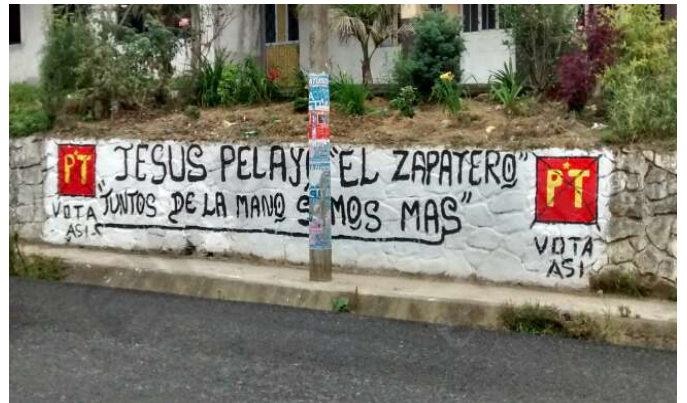 PT
VOTA
ASI
JESUS PELAY "EL ZAPATERO"
"JUNTOS DE LA MANO S MOS MAS"
PT
VOTA
ASI